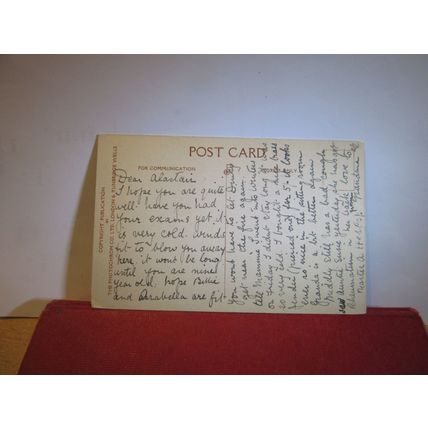 POST CARD
FOR COMMUNICATION
COPYRIGHT PUBLICATION
THE PHOTOCHROM CO. LTD. LONDON & TUNBRIDGE WELLS
Dear Alastair
hope you are quite
well. have you had
your exams yet. it
is very cold. winds
fit to blow you away
here. it wont be long
until you are nine
year old. hope Billie
and Arabella are fit
You wont have to let Dinky
get near the fire again.
tell Mamma I went into
on Friday I didnt stay long it was
so very cold I bought a nice brass
fender for 5/- it looks
fine so nice in the sitting room
Grandia is a bit better again
Freddy still has a bad cough
saw Aunt
this week love to